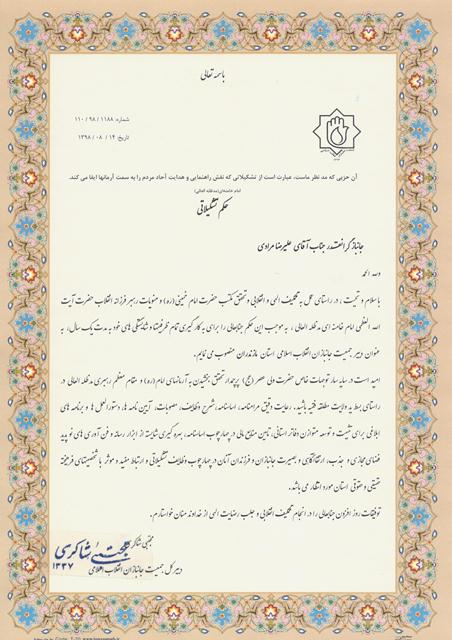 باسمه تعالی
شماره: ۱۱۸۸ / ۹۸ / ۱۱۰
تاریخ: ۱۴ / ۰۸ / ۱۳۹۸
آن حزبی که مد نظر ماست، عبارت است از تشکیلاتی که نقش راهنمایی و هدایت آحاد مردم را به سمت آرمانها ایفا می کند.
امام خامنه‌ای (مدظله العالی)
حکم تشکیلاتی
جانباز گرانقدر جناب آقای علیرضا مرادی
وله الحمد
با سلام و تحیت، در راستای عمل به تکلیف الهی و انقلابی و تحقق مکتب حضرت امام خمینی (ره) و منویات رهبر فرزانه انقلاب حضرت آیت
الله العظمی امام خامنه ای مدظله العالی، به موجب این حکم جنابعالی را برای به کارگیری تمام ظرفیتها و شایستگی های خود به مدت یک سال، به
عنوان دبیر جمعیت جانبازان انقلاب اسلامی استان مازندران منصوب می نمایم.
امید است در سایه سار توجهات خاص حضرت ولی عصر (عج) پرچمدار تحقق بخشیدن به آرمانهای امام (ره) و مقام معظم رهبری مدظله العالی در
راستای بسط ید ولایت مطلقه فقیه باشید. رعایت دقیق مرامنامه، اساسنامه، شرح وظایف، مصوبات، آیین نامه ها و دستورالعمل ها و برنامه های
ابلاغی برای تثبیت و توسعه متوازن دفاتر استانی، تامین منابع مالی در چهارچوب اساسنامه، بهره گیری شایسته از ابزار رسانه و فن آوری های نو پدید
فضای مجازی و جذب، ارتقا آگاهی و بصیرت جانبازان و فرزندان آنان در چهارچوب وظایف تشکیلاتی و ارتباط مفید و موثر با شخصیتهای فرهیخته
حقیقی و حقوقی استان مورد انتظار می باشد.
توفیقات روز افزون جنابعالی را در انجام تکلیف انقلابی و جلب رضایت الهی از خداوند منان خواستارم.
مجتبی شاکری
مجتبی شاکری
۱۳۳۷
دبیر کل جمعیت جانبازان انقلاب اسلامی